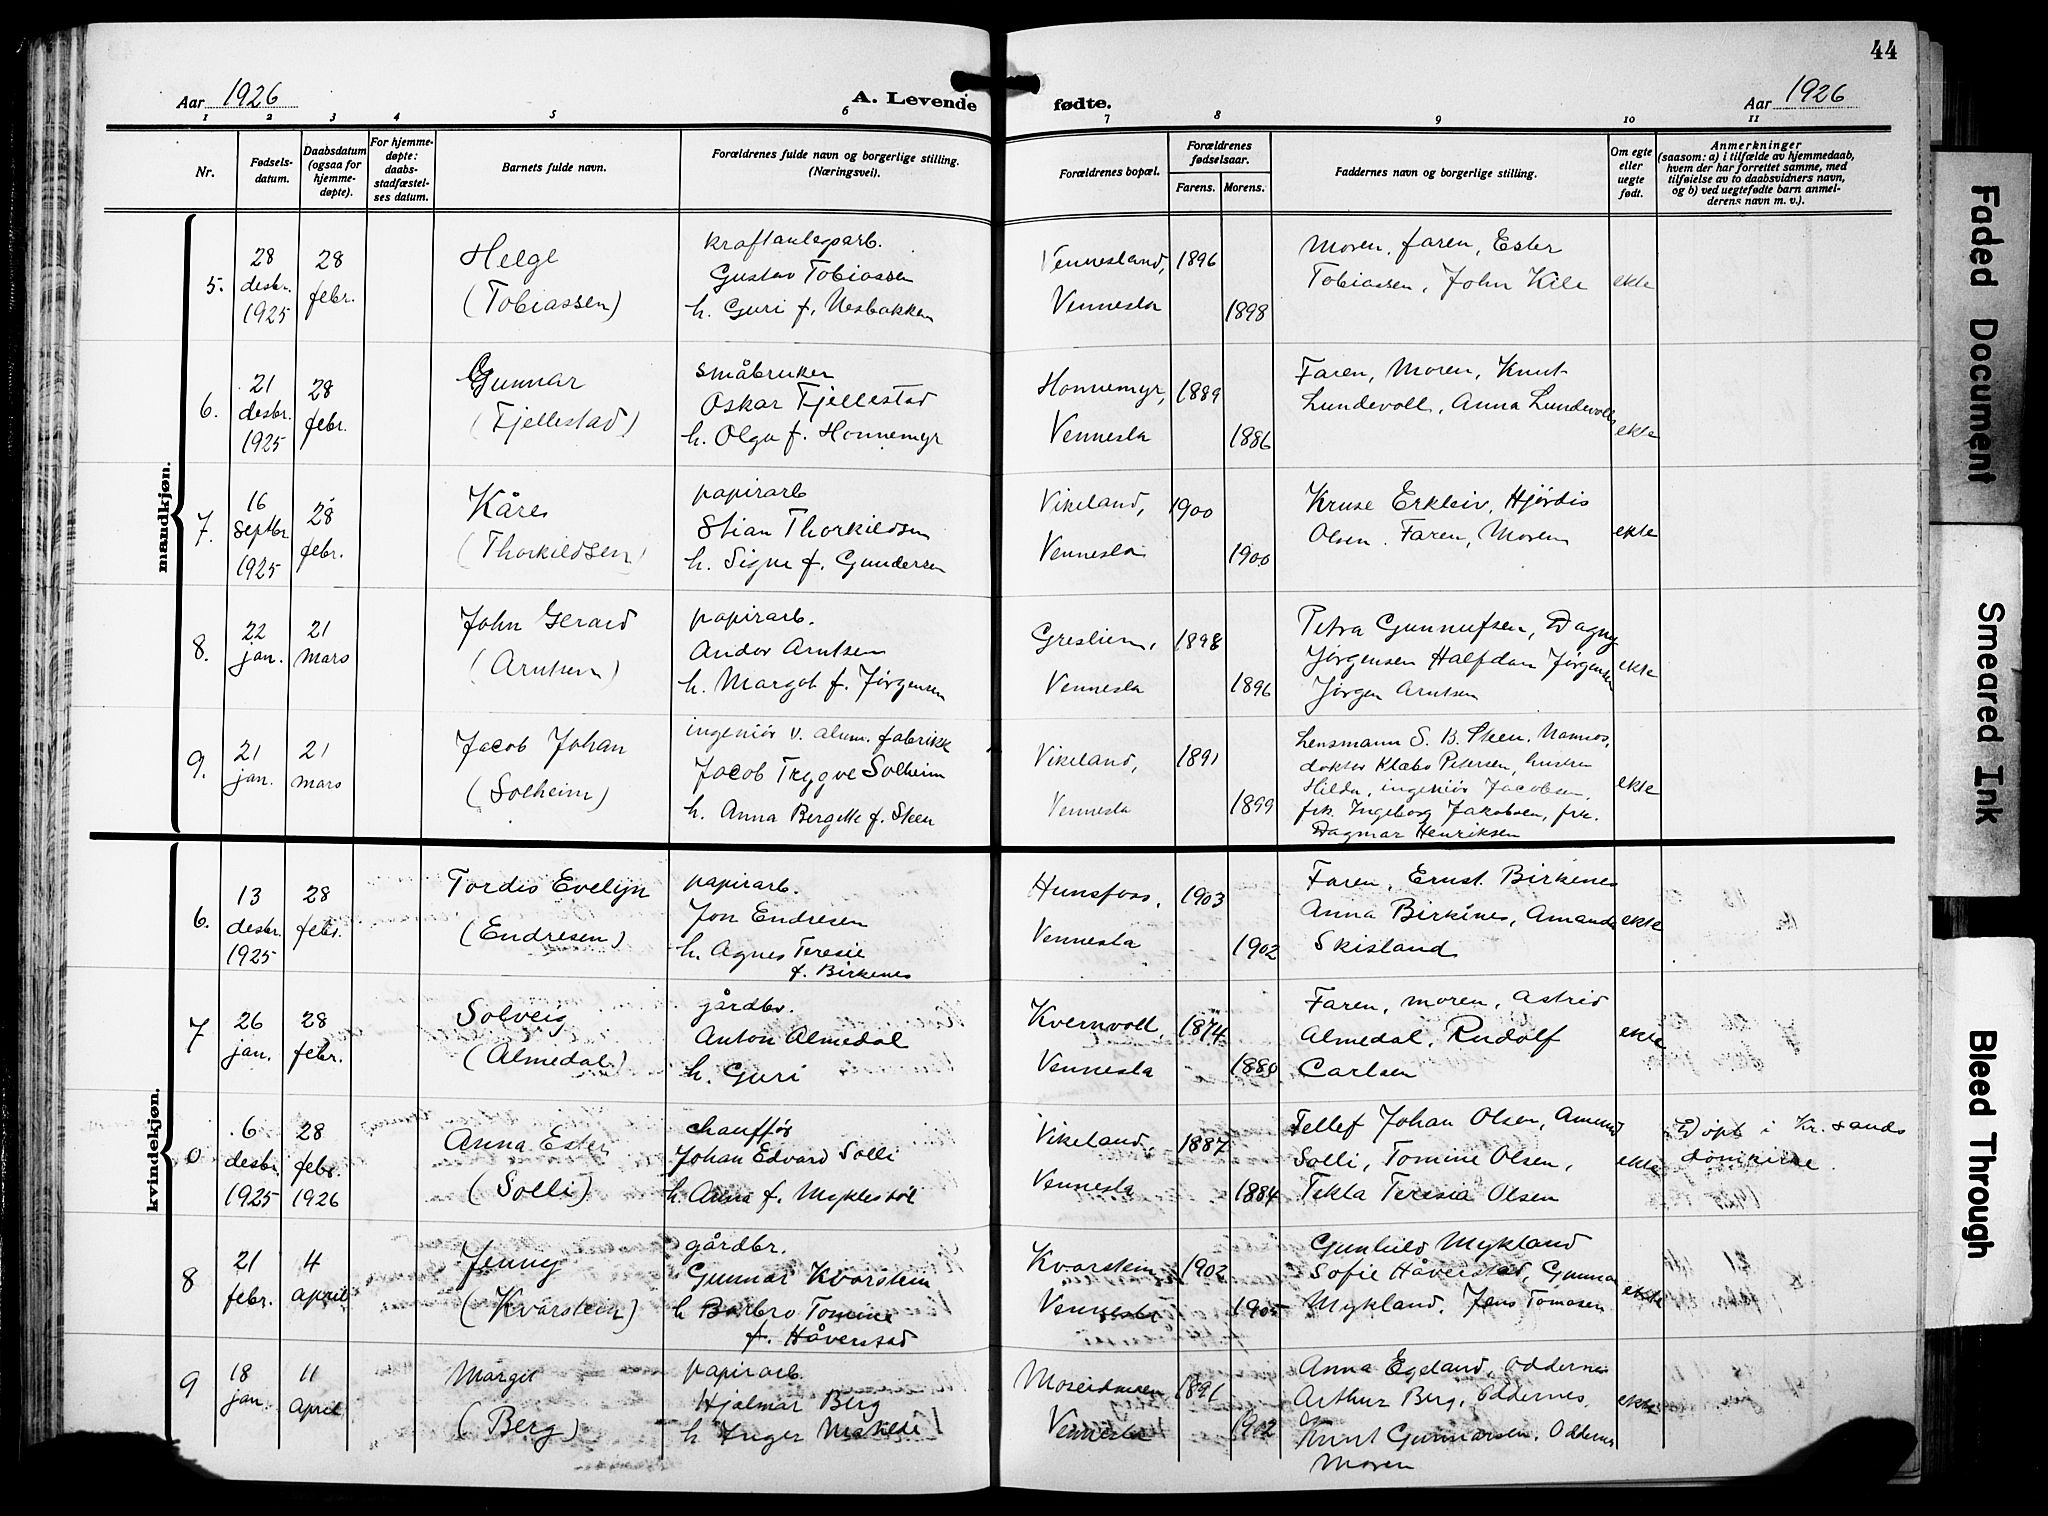 44
Aar 1926
A. Levende fødte.
Aar 1926
1 2 3 4 5 6 7 8 9 10 11
Nr.
Fødsels-
datum.
Daabsdatum
(ogsaa for
hjemme-
døpte).
For hjemme-
døpte:
daabs-
stadfæstel-
ses datum.
Barnets fulde navn.
Forældrenes fulde navn og borgerlige stilling.
(Næringsvei).
Forældrenes bopæl.
Forældrenes
fødselsaar.
Farens. Morens.
Faddernes navn og borgerlige stilling.
Om egte
eller
uegte
født.
Anmerkninger
(saasom: a) i tilfælde av hjemmedaab,
hvem der har forrettet samme, med
tilføielse av to daabsvidners navn,
og b) ved uegtefødte barn anmel-
derens navn m. v.).
mandkjøn.
5.
28
desbr.
1925
28
febr.
Helge
(Tobiassen)
kraftanlegsarb.
Gustav Tobiassen
h. Guri f. Nesbakken
Vennesland,
Vennesla
1896
1898
Moren, faren, Ester
Tobiassen, John Kile
ekte
6.
21
desbr.
1925
28
febr.
Gunnar
(Fjellestad)
småbruker
Oskar Fjellestad
h. Olga f. Honnemyr
Honnemyr,
Vennesla
1889
1886
Faren, Moren, Knut
Lundevoll, Anna Lundevoll
ekte
7.
16
septbr.
1925
28
febr.
Kåre
(Thorkildsen)
papirarb
Stian Thorkildsen
h. Signe f. Gundersen
Vikeland,
Vennesla
1900
1900
Kruse Erkleiv, Hjördis
Olsen. Faren, Moren
ekte
8.
22
jan.
21
mars
John Gerard
(Arntsen)
papirarb.
Andor Arntsen
h. Margot f. Jørgensen
Greslien,
Vennesla
1898
1896
Petra Gunnufsen, Dagny
Jørgensen Halfdan Jørgensen
Jørgen Arntsen
ekte
9.
21
jan.
21
mars
Jacob Johan
(Solheim)
ingeniør v. alum. fabrikk
Jacob Trygve Solheim
h. Anna Bergette f. Steen
Vikeland,
Vennesla
1891
1899
Lensmann S. B. Steen, Namsos,
doktor Klæbo Petersen, hustru
Hilda, ingeniør Jacobsen,
frk. Ingeborg Jakobsen, frk.
Dagmar Henriksen
ekte
kvindekjøn.
6.
13
desbr.
1925
28
febr.
Tordis Evelyn
(Endresen)
papirarb.
Jon Endresen
h. Agnes Teresie
f. Birkenes
Hunsfoss,
Vennesla
1903
1902
Faren, Ernst Birkenes
Anna Birkenes, Amanda
Skisland
ekte
7
26
jan.
28
febr.
Solveig
(Almedal)
gårdbr.
Anton Almedal
h. Guri
Kvernvoll,
Vennesla
1874
1880
Faren, moren, Astrid
Almedal, Rudolf
Carlsen
ekte
0
6
desbr.
1925
28
febr.
1926
Anna Ester
(Solli)
chauffør
Johan Edvard Solli
h. Anna f. Myklestöl
Vikeland,
Vennesla
1887
1884
Tellef Johan Olsen, Amund
Solli, Tomine Olsen,
Tekla Teresia Olsen
ekte
Døpt i Kr.sands
domkirke.
8
21
febr.
4
april
Jenny
(Kvarstein)
gårdbr.
Gunnar Kvarstein
h Barbro Tomine
f. Håverstad
Kvarstein
Vennesla
1902
1905
Gunhild Mykland
Sofie Håverstad, Gunnar
Mykland, Jens Tomasen
ekte
9
18
jan.
11
april
Margit
(Berg)
papirarb.
Hjalmar Berg
h Inger Matilde
Moseidmoen
Vennesla
1896
1902
Anna Egeland, Oddernes
Arthur Berg, Oddernes,
Knut Gunnarsen, Oddernes
Moren
ekte
Faded Document
Smeared Ink
Bleed Through